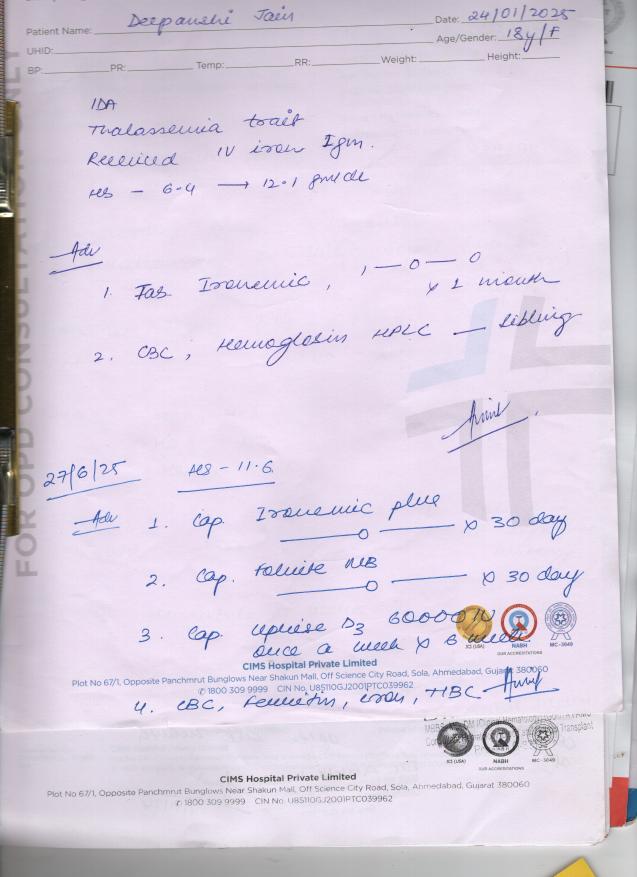 Patient Name: Deepanshi Jain Date: 24/01/2025
UHID: Age/Gender: 18y/F
BP: PR: Temp: RR: Weight: Height:
IDA
Thalassemia trait
Received IV iron 1gm.
Hb - 6.4 → 12.1 gm/dl
Adv
1. Tab. Ironemic, 1 — 0 — 0
x 1 month
2. CBC, Hemoglobin HPLC — sibling
27/6/25 Hb - 11.6
Adv 1. Cap. Ironemic plus
—0— x 30 day
2. Cap. Folnite MB
—0— x 30 day
3. Cap. Uprise D3 60000 IU
once a week x 6 week
JCI (USA) NABH MC-3049
OUR ACCREDITATIONS
CIMS Hospital Private Limited
Plot No 67/1, Opposite Panchmrut Bunglows Near Shakun Mall, Off Science City Road, Sola, Ahmedabad, Gujarat 380060
✆ 1800 309 9999 CIN No. U85110GJ2001PTC039962
4. CBC, Ferritin, iron, TIBC
JCI (USA) NABH MC-3049
OUR ACCREDITATIONS
CIMS Hospital Private Limited
Plot No 67/1, Opposite Panchmrut Bunglows Near Shakun Mall, Off Science City Road, Sola, Ahmedabad, Gujarat 380060
✆ 1800 309 9999 CIN No. U85110GJ2001PTC039962
FOR OPD CONSULTATION ONLY